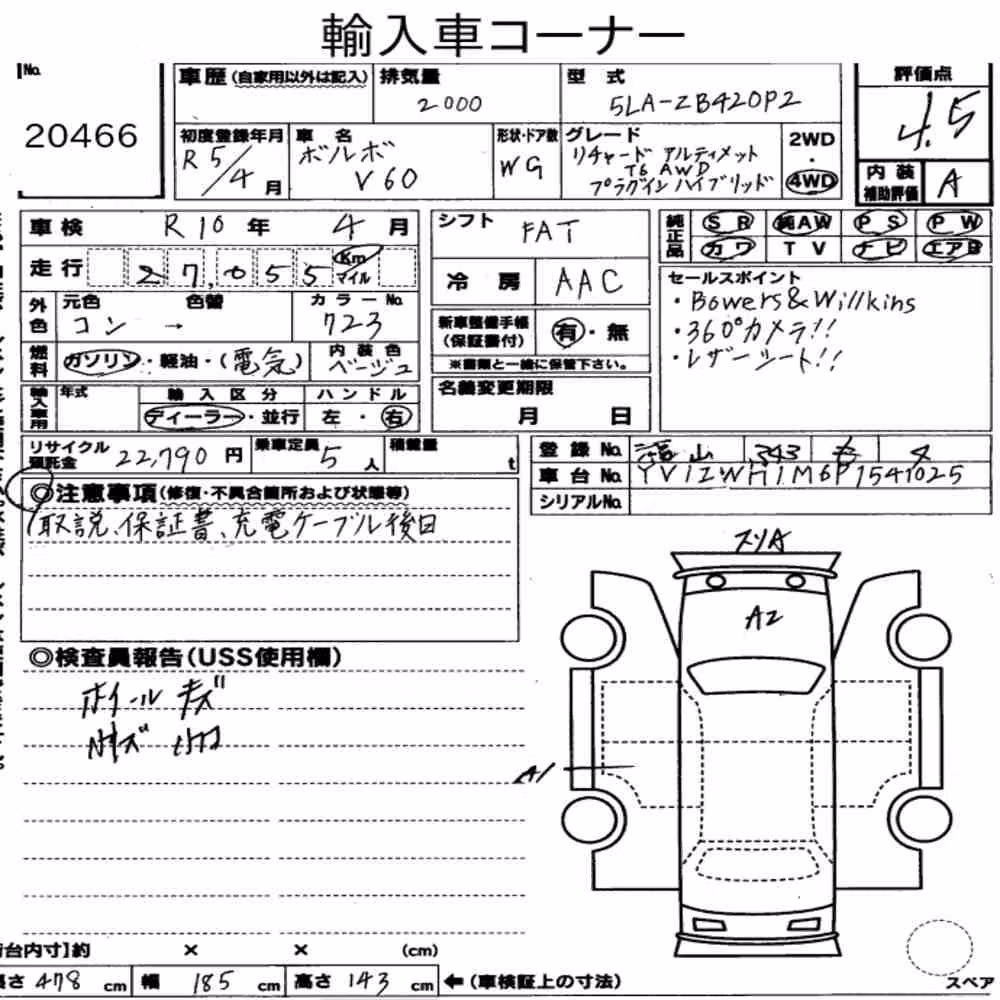 輸入車コーナー
No.
20466
車歴(自家用以外は記入)
排気量
2000
型 式
5LA-ZB420P2
評価点
4.5
初度登録年月
R5/4月
車 名
ボルボ
V60
形状・ドア数
WG
グレード
リチャード アルティメット
T6 AWD
プラグインハイブリッド
2WD
・
4WD
内 装
補助評価
A
車検 R10年 4月
走行 27,055 Km
マイル
外色
元色
色替
コン →
カラーNo.
723
燃料
ガソリン・軽油・(電気)
内 装 色
ベージュ
輸入車用
年式
輸 入 区 分
ディーラー・並行
ハ ン ド ル
左・右
シフト
FAT
冷 房
AAC
新車整備手帳
(保証書付)
有・無
※書類と一緒に保管下さい。
名義変更期限
月 日
純正品
SR 純AW PS PW
カワ TV ナビ エアB
セールスポイント
・Bowers&Willkins
・360°カメラ!!
・レザーシート!!
リサイクル
預託金
22,790円
乗車定員
5人
積載量
t
登 録 No.
山 343
車 台 No. YV1ZWH1M6P1541025
シリアルNo.
◎注意事項(修復・不具合箇所および状態等)
取説、保証書、充電ケーブル後日
◎検査員報告(USS使用欄)
ホイール キズ
スリA
A2
A1
荷台内寸】約 × × (cm)
長さ 478 cm 幅 185 cm 高さ 143 cm ←(車検証上の寸法)
スペア